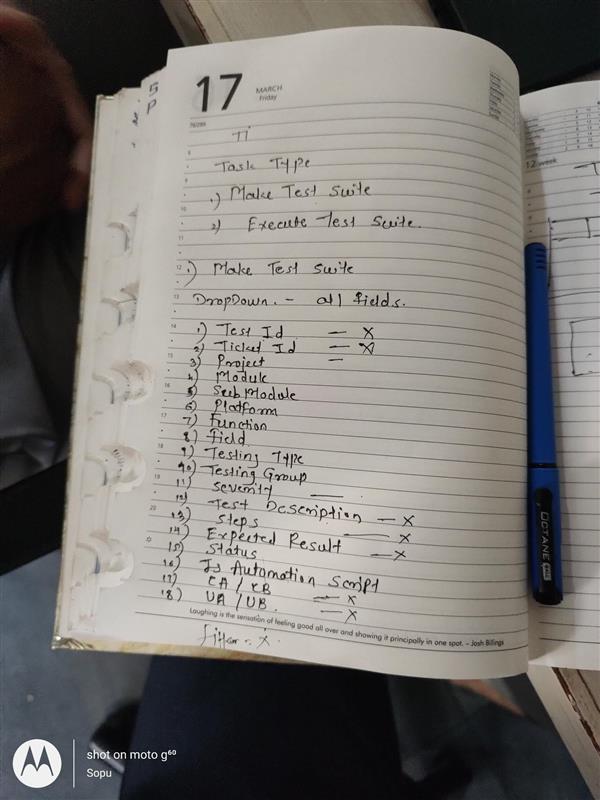 17
MARCH
Friday
76/289
Ti
Task Type
1) Make Test Suite
2) Execute Test Suite.
1) Make Test Suite
DropDown. - all fields.
1) Test Id — X
2) Ticket Id — X
3) Project —
4) Module
5) Sub Module
6) Platform
7) Function
8) Field
9) Testing Type
10) Testing Group
11) Severity —
12) Test Description — X
13) Steps — X
14) Expected Result — X
15) Status
16) Is Automation Script
17) CA / CB — X
18) UA / UB. — X
Laughing is the sensation of feeling good all over and showing it principally in one spot. – Josh Billings
filter - X.
S
P
12 week
OCTANE
shot on moto g⁶⁰
Sopu